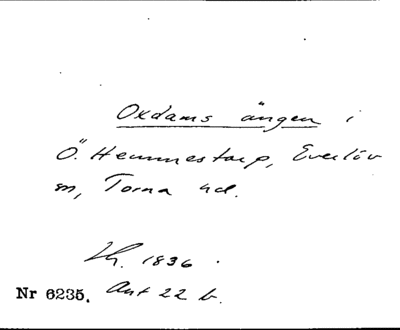 Oxdams ängen i
Ö. Hemmestorp, Everlöv
sn, Torna hd.
Lh. 1836.
Nr 6235. Akt 22 b.